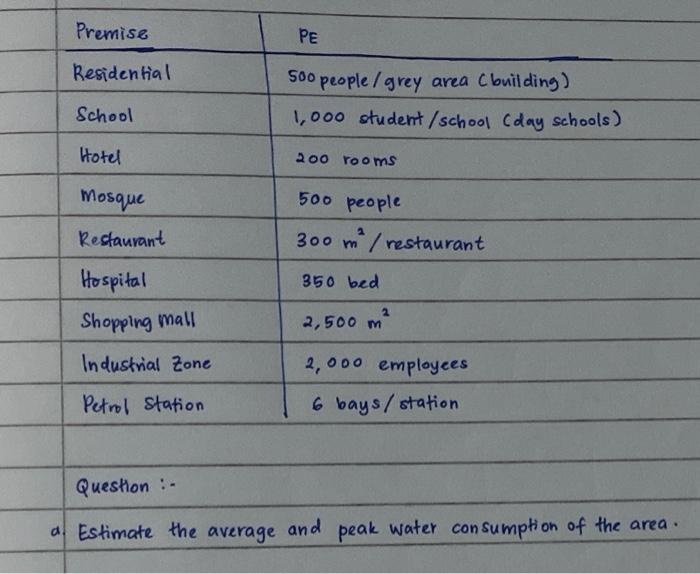 Premise PE
Residential 500 people / grey area (building)
School 1,000 student / school (day schools)
Hotel 200 rooms
Mosque 500 people
Restaurant 300 m² / restaurant
Hospital 350 bed
Shopping mall 2,500 m²
Industrial Zone 2,000 employees
Petrol Station 6 bays / station
Question :-
a. Estimate the average and peak water consumption of the area.